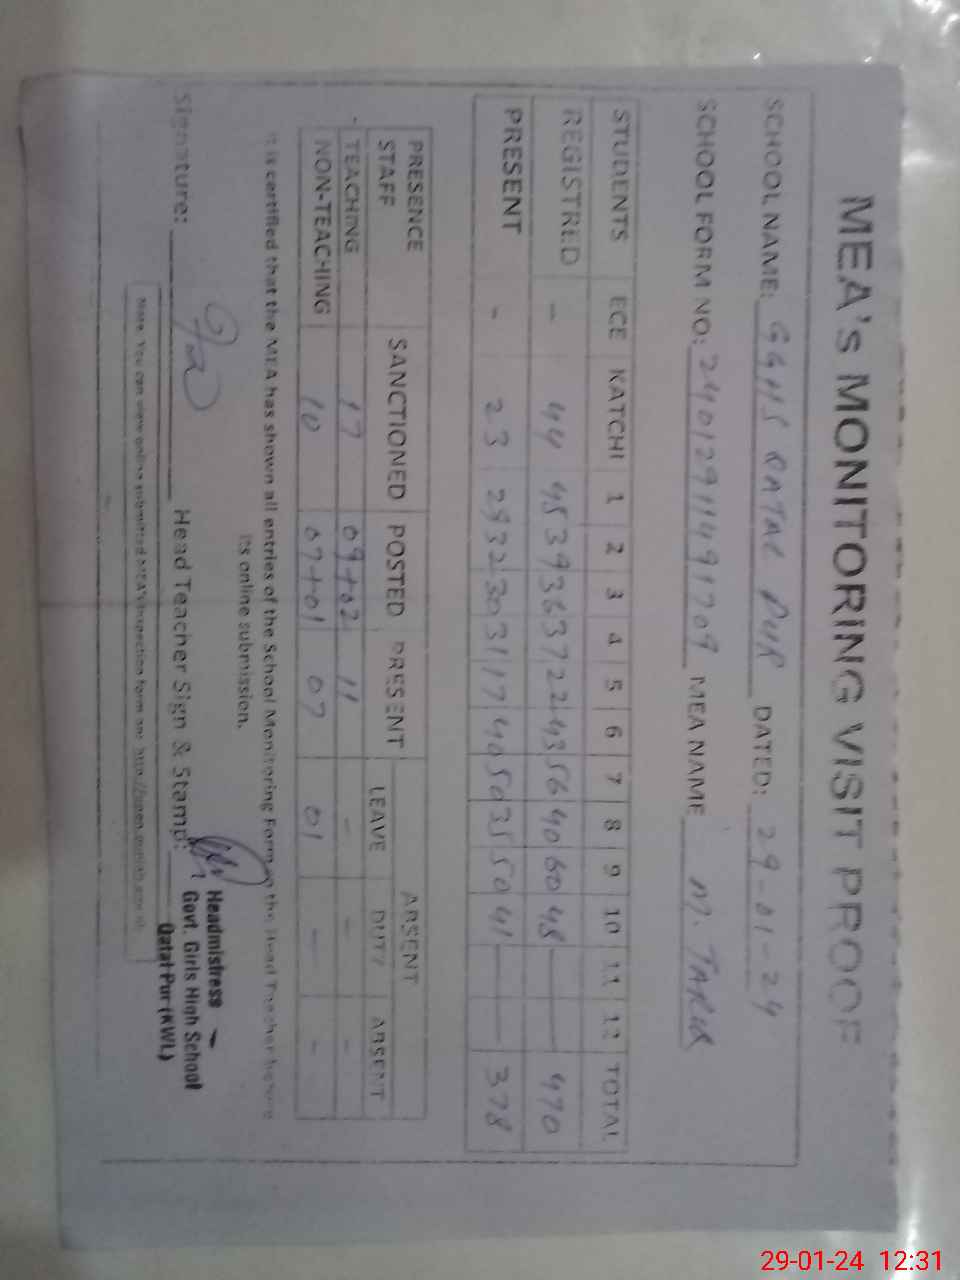 MEA's MONITORING VISIT PROOF
SCHOOL NAME: GGHS QATAL PUR DATED: 29-01-24
SCHOOL FORM NO: 2401291149 1709 MEA NAME M. TARIK
STUDENTS ECE KATCHI 1 2 3 4 5 6 7 8 9 10 11 12 TOTAL
REGISTRED - 44 45 39 36 37 22 43 56 40 60 48 — — 470
PRESENT - 23 29 32 30 31 17 40 50 35 50 41 — — 378
PRESENCE STAFF SANCTIONED POSTED PRESENT ABSENT
LEAVE DUTY ABSENT
TEACHING 17 09+02 11 - - -
NON-TEACHING 10 07+01 07 01 — -
It is certified that the MEA has shown all entries of the School Monitoring Form to the Head Teacher before
its online submission.
Signature: Head Teacher Sign & Stamp:
Headmistress
Govt. Girls High School
Qatal Pur (KWL)
Note: You can view online submitted MEA's inspection form on:
29-01-24 12:31